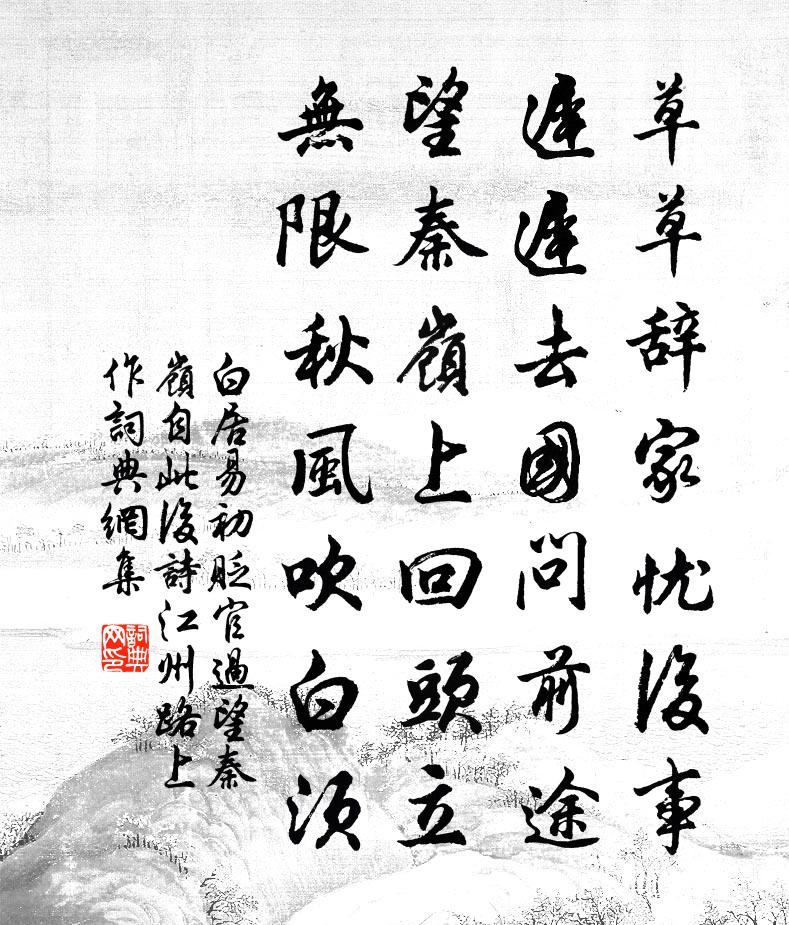 草草辞家忧後事
遲遲去國問前途
望秦嶺上回頭立
無限秋風吹白須
白居易初貶官過望秦
嶺自此後詩江州路上
作詞典網集
詞典
网印